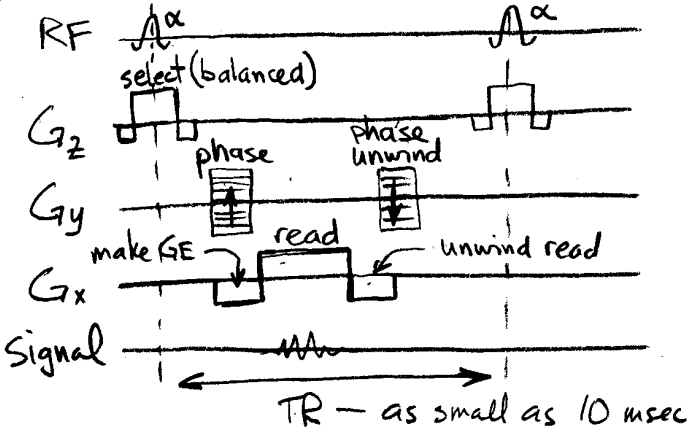 RF α α
select (balanced)
Gz
phase phase unwind
Gy
make GE read unwind read
Gx
Signal
TR — as small as 10 msec